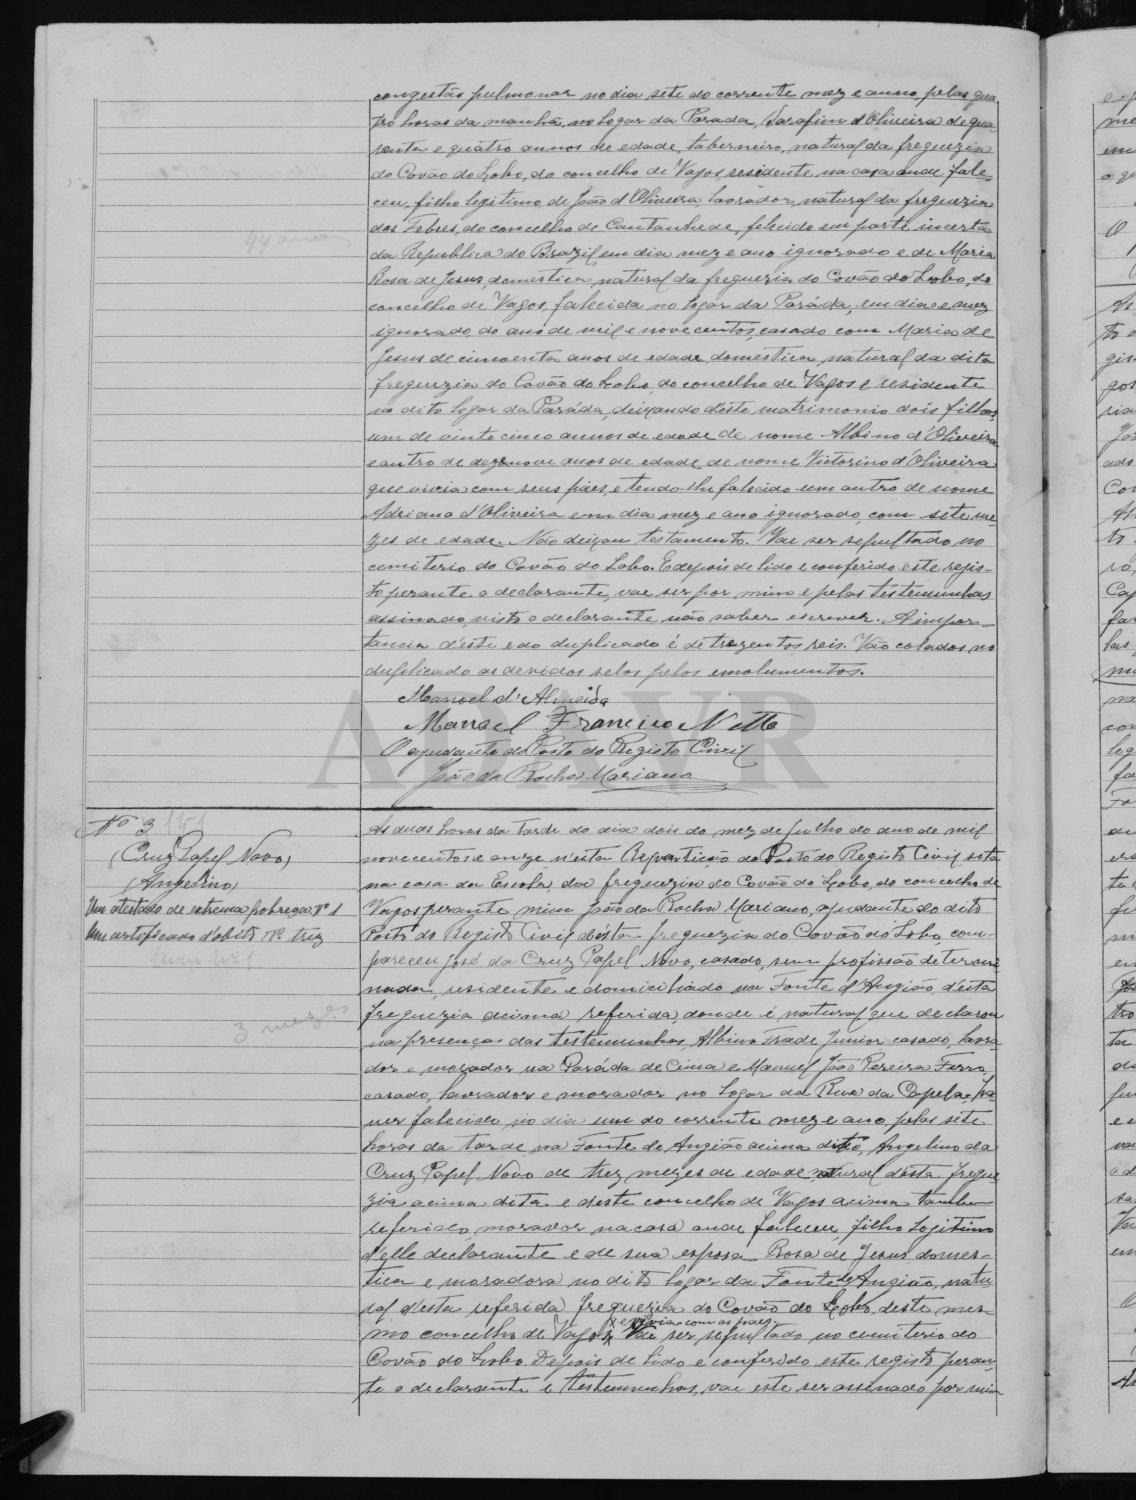 congestão pulmonar no dia sete do corrente mez e anno, pelas qua
tro horas da manhã, no logar da Parada, Serafim d'Oliveira de qua
renta e quatro annos de edade, taberneiro, natural da freguezia
do Covão do Lobo, do concelho de Vagos, residente na casa onde fale-
ceu, filho legitimo de João d'Oliveira, lavrador, natural da freguezia
dos Febres, do concelho de Cantanhede, felicido em parte incerta
44 anos
da Republica do Brazil, em dia mez e ano ignorado e de Maria
Rosa de Jesus, domestica, natural da freguezia do Covão do Lobo, do
concelho de Vagos, falecida no logar da Paráda, em dia e mez
ignorado, do ano de mil e novecentos, casado com Maria de
Jesus de cincoenta anos de edade domestica, natural da dita
freguezia do Covão do Lobo, do concelho de Vagos e residente
no dito logar da Paráda, deixando d'este matrimonio dois filhos,
um de vinte cinco annos de edade de nome Albino d'Oliveira
e outro de dezenove anos de edade, de nome Victorino d'Oliveira
que vivia com seus páes, e tendo-lhe falecido um outro de nome
Adriano d'Oliveira em dia mez e ano ignorado, com sete me-
zes de edade. Não deixou testamento. Vae ser sepultado no
cemiterio do Covão do Lobo. E depois de lido e conferido este regis-
to perante o declarante, vae ser por mim e pelas testemunhas
assinado, visto o declarante não saber escrever. A impor-
tancia d'este e do duplicado é de trezentos reis. Vão colados no
duplicado os devidos selos pelos emolumentos.
Manoel d'Almeida
Manoel Francisco Netto
O ajudante do Posto do Registo Civil
João da Rocha Mariano
ADAVR
Nº 3 161
(Cruz Papel Novo)
(Angelino)
Um atestado de extrema pobreza nº 1
Um certificado d'obito nº trez
3 mezes
Ás duas horas da tarde do dia dois do mez de Julho do ano de mil
novecentos e onze n'esta Repartição do Posto do Registo Civil, sita
na casa da Escola, da freguezia do Covão do Lobo, do concelho de
Vagos, perante mim João da Rocha Mariano, ajudante do dito
Posto do Registo Civil d'esta freguezia do Covão do Lobo, com-
pareceu José da Cruz Papel Novo, casado, sem profissão determi
nada, residente e domiciliado na Fonte d'Angião, d'esta
freguezia acima referida, donde é natural, que declarou
na presença das testemunhas, Albino Frade Junior casado, lavra-
dor e morador na Paráda de Cima e Manuel João Pereira Ferro,
casado, lavrador e morador no logar da Rua da Capela, ha
ver falecido, no dia um do corrente mez e ano, pelas sete
horas da tarde, na Fonte de Angião acima dito, Angelino da
Cruz Papel Novo de trez mezes de edade, natural d'esta fregue
zia acima dita e d'este concelho de Vagos acima tambem
referido, morador na casa onde faleceu, filho legitimo
d'elle declarante e de sua esposa Rosa de Jesus domes-
tica e moradora no dito logar da Fonte de Angião, natu-
ral d'esta referida freguezia do Covão do Lobo, deste mes-
e vivia com os paes.
mo concelho de Vagos, Vae ser sepultado no cemiterio do
Covão do Lobo. Depois de lido e conferido este registo peran-
te o declarante e testemunhas, vae este ser assinado por mim